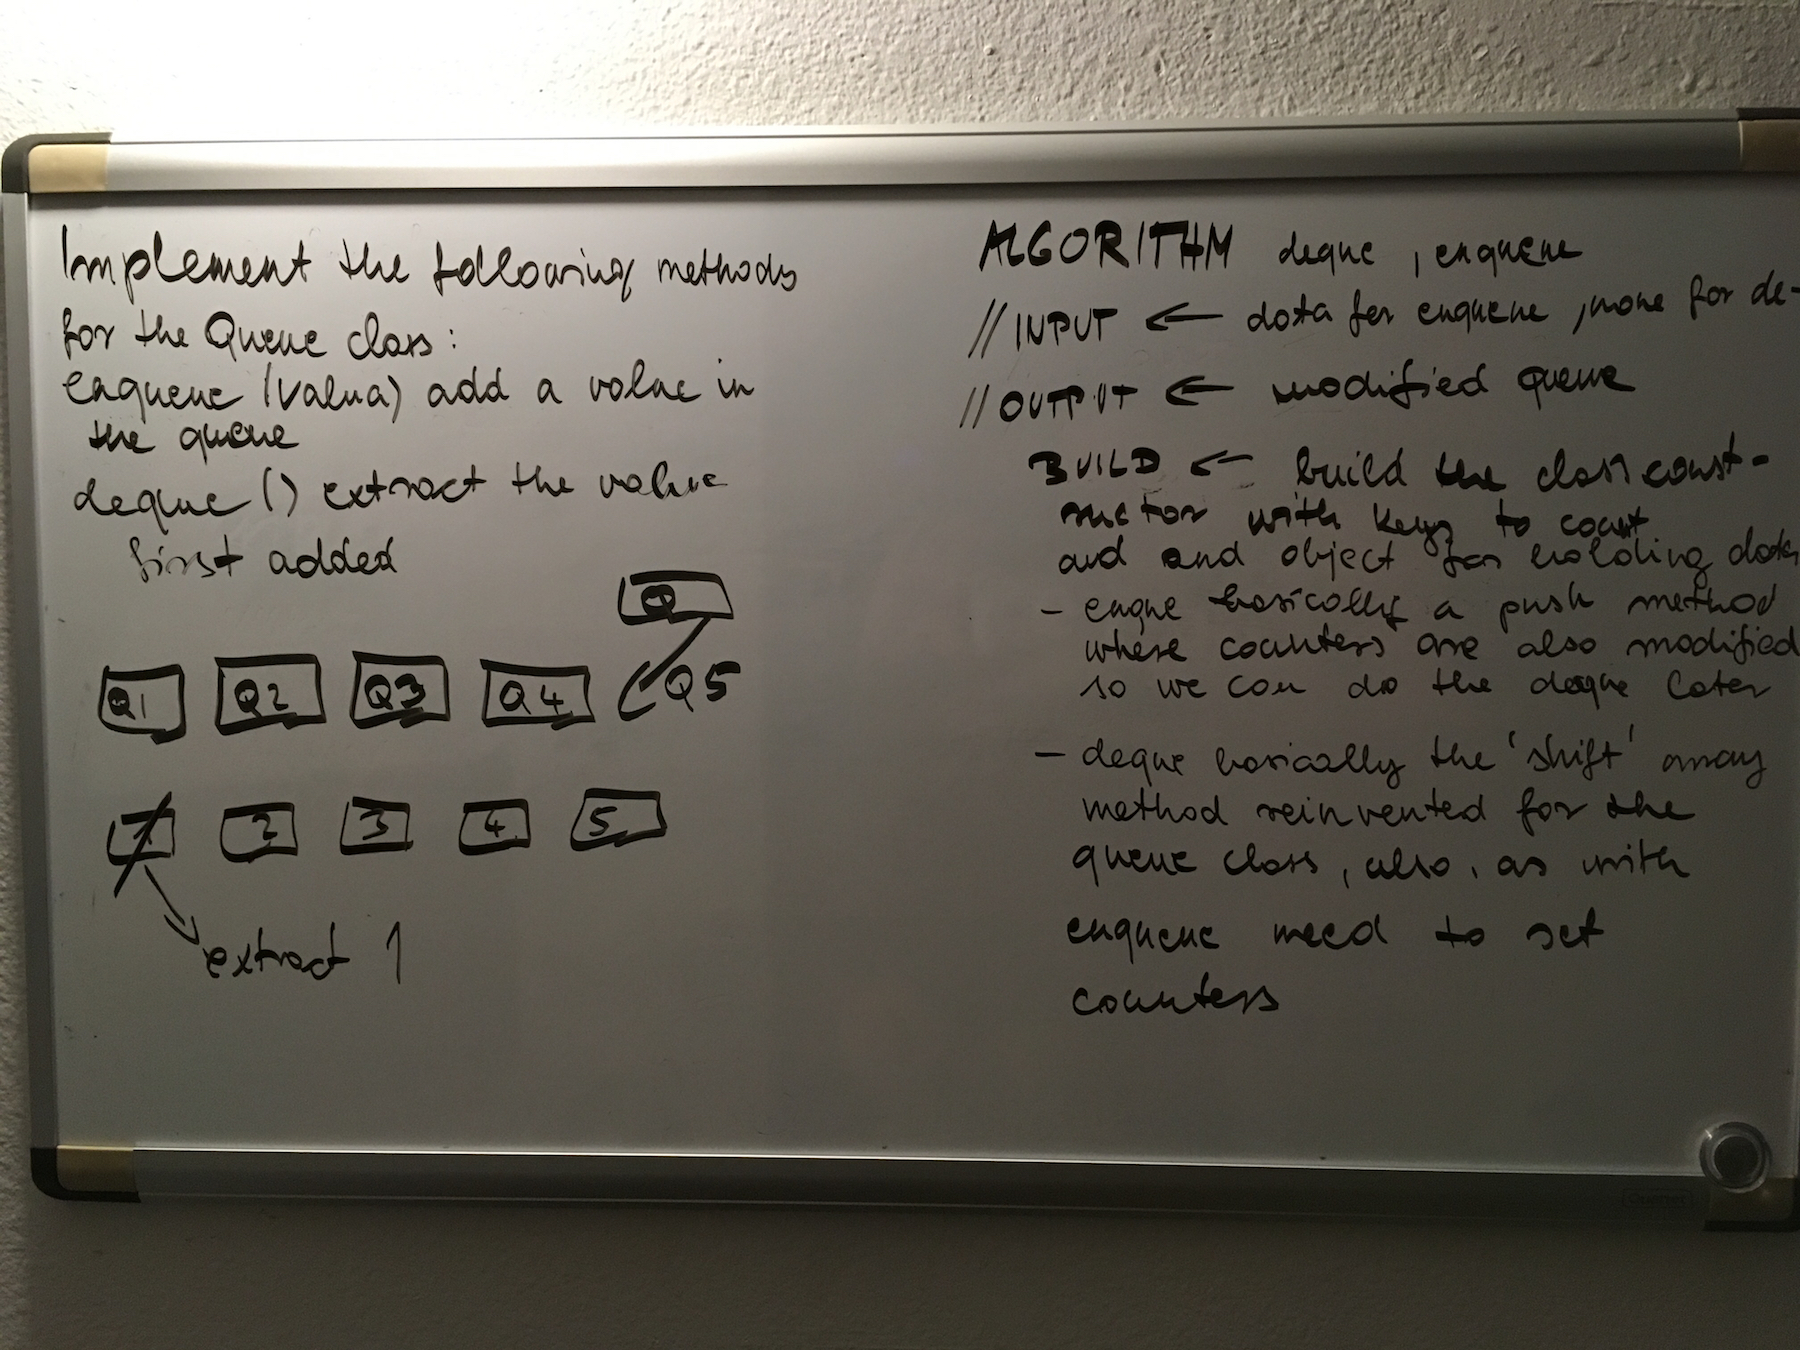 Implement the following methods
for the Queue class:
enqueue (value) add a value in
the queue
deque () extract the value
first added
Q
Q1 Q2 Q3 Q4 Q5
1 2 3 4 5
extract 1
ALGORITHM deque , enqueue
// INPUT ← data for enqueue , none for de-
// OUTPUT ← modified queue
BUILD ← build the class const-
ructor with keys to count
and and object for holding data
- enque basically a push method
where counters are also modified
so we can do the deque later
- deque basically the 'shift' array
method reinvented for the
queue class, also, as with
enqueue need to set
counters